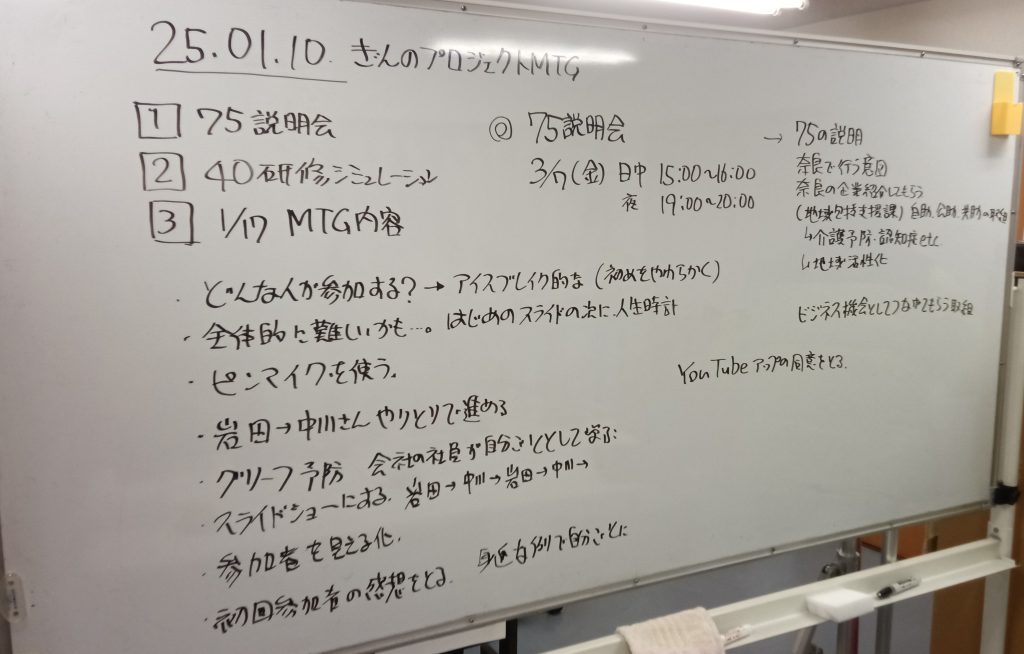 25.01.10. ぎんのプロジェクトMTG
1 75説明会
2 40研修シミュレーション
3 1/17 MTG内容
・どんな人が参加する?→アイスブレイク的な(初めをやわらかく)
・全体的に難しいかも…。はじめのスライドの次に、人生時計
・ピンマイクを使う。
・岩田→中川さん やりとりで進める
・グリーフ予防 会社の社員が自分ごととして学ぶ
・スライドショーにする。岩田→中川→岩田→中川→
・参加者を見える化。
・初回参加者の感想をとる。 身近な例で自分ごとに
◎ 75説明会
3/7(金) 日中 15:00~16:00
夜 19:00~20:00
→ 75の説明
奈良で行う意図
奈良の企業紹介してもらう
(地域包括支援課) 自助、公助、共助の取組
↳介護予防・認知症etc.
↳地域活性化
ビジネス機会としてつなげてもらう取組
YouTubeアップの同意をとる。